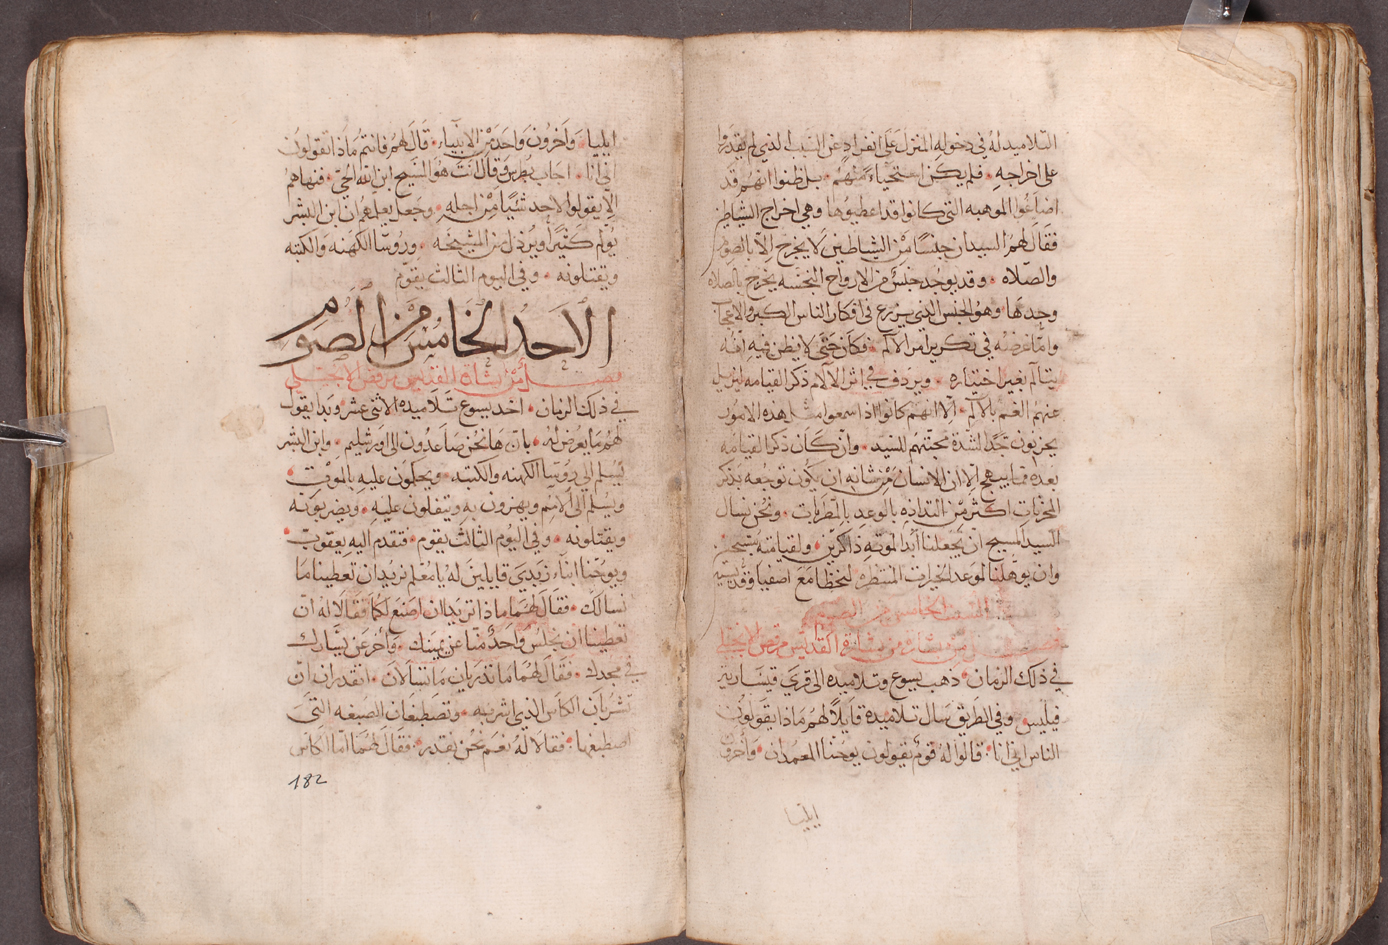 التلاميد له في دخوله المنزل على انفراد عن السبب الذي لم يقدروا
على اخراجه • فلم يكن استحياء منهم • بل ظنوا انهم قد
اضاعوا الموهبه التي كانوا قد اعطيوها وهي اخراج الشياطين
فقال لهم السيد ان جنسًا من الشياطين لا يخرج الا بالصوم
والصلاه • وقد يوجد جنس من الارواح النجسه يخرج بالصلاه
وحدها وهو الجنس الذي يزرع في افكار الناس الكبر والاعجاب
واما غرضه في تكرير امر الالام • فكان حتى لا يظن فيه انه
يتالم بغير اختياره • ويردف في اثر الالام ذكر القيامه ليزيل
عنهم الغم بالالم • الا انهم كانوا اذا سمعوا مثل هذه الامور
يحزنون جدًا لشدة محبتهم للسيد • وان كان ذكر القيامه
بعده مما يبهج الا ان الانسان من شانه ان يكون توجعه بذكر
المحزنات اكثر من التداده بالوعد بالمطربات • ونحن نسال
السيد المسيح ان يجعلنا ابدًا لموته ذاكرين • ولقيامته
وان يوهلنا لوعد الخيرات المنتظره لنحظا مع اصفيا وقديسيه
السبت الخامس من الصوم
فصل من بشارة مرقس القديس مرقص الانجيلي
في ذلك الزمان • ذهب يسوع وتلاميده الى قري قيسارية
فيلبس • وفي الطريق سال تلاميده قايلاً لهم ماذا يقولون
الناس اني انا • قالوا له قوم يقولون يوحنا المعمدان • واخرون
ايليا
ايليا • واخرون واحد من الانبياء • قال لهم فانتم ماذا تقولون
اني انا • اجاب بطرس وقال انت هو المسيح ابن الله الحي • فنهاهم
الا يقولوا لاحد شيًا من اجله • وجعل يعلمهم ان ابن البشر
يولم كثيرًا ويرذل من المشيخه • وروسا الكهنه والكتبه
ويقتلونه • وفي اليوم الثالث يقوم
الاحد الخامس من الصوم
فصل من بشارة القديس مرقص الانجيلي
في ذلك الزمان • اخد يسوع تلاميده الاثنى عشر وبدا يقول
لهم ما يعرض له • بان ها نحن صاعدون الى اورشليم • وابن البشر
يسلم الى روسا الكهنه والكتبه • ويحكمون عليه بالموت •
ويسلم الى الامم ويهزون به ويتفلون عليه • ويضربونه
ويقتلونه • وفي اليوم الثالث يقوم • فتقدم اليه يعقوب
ويوحنا ابناء زبدي قايلين له يا معلم نريد ان تعطينا ما
نسالك • فقال لهما ماذا تريدان اصنع لكما فقالا له ان
تعطينا ان يجلس واحد منا عن يمينك • واخر عن يسارك
في مجدك • فقال لهما ما تدريان ما تسالان • اتقدران ان
تشربان الكاس الذي اشربه • وتصطبغان الصبغه التي
اصطبغها • فقالا له نعم نحن نقدر • فقال لهما اما الكاس
182